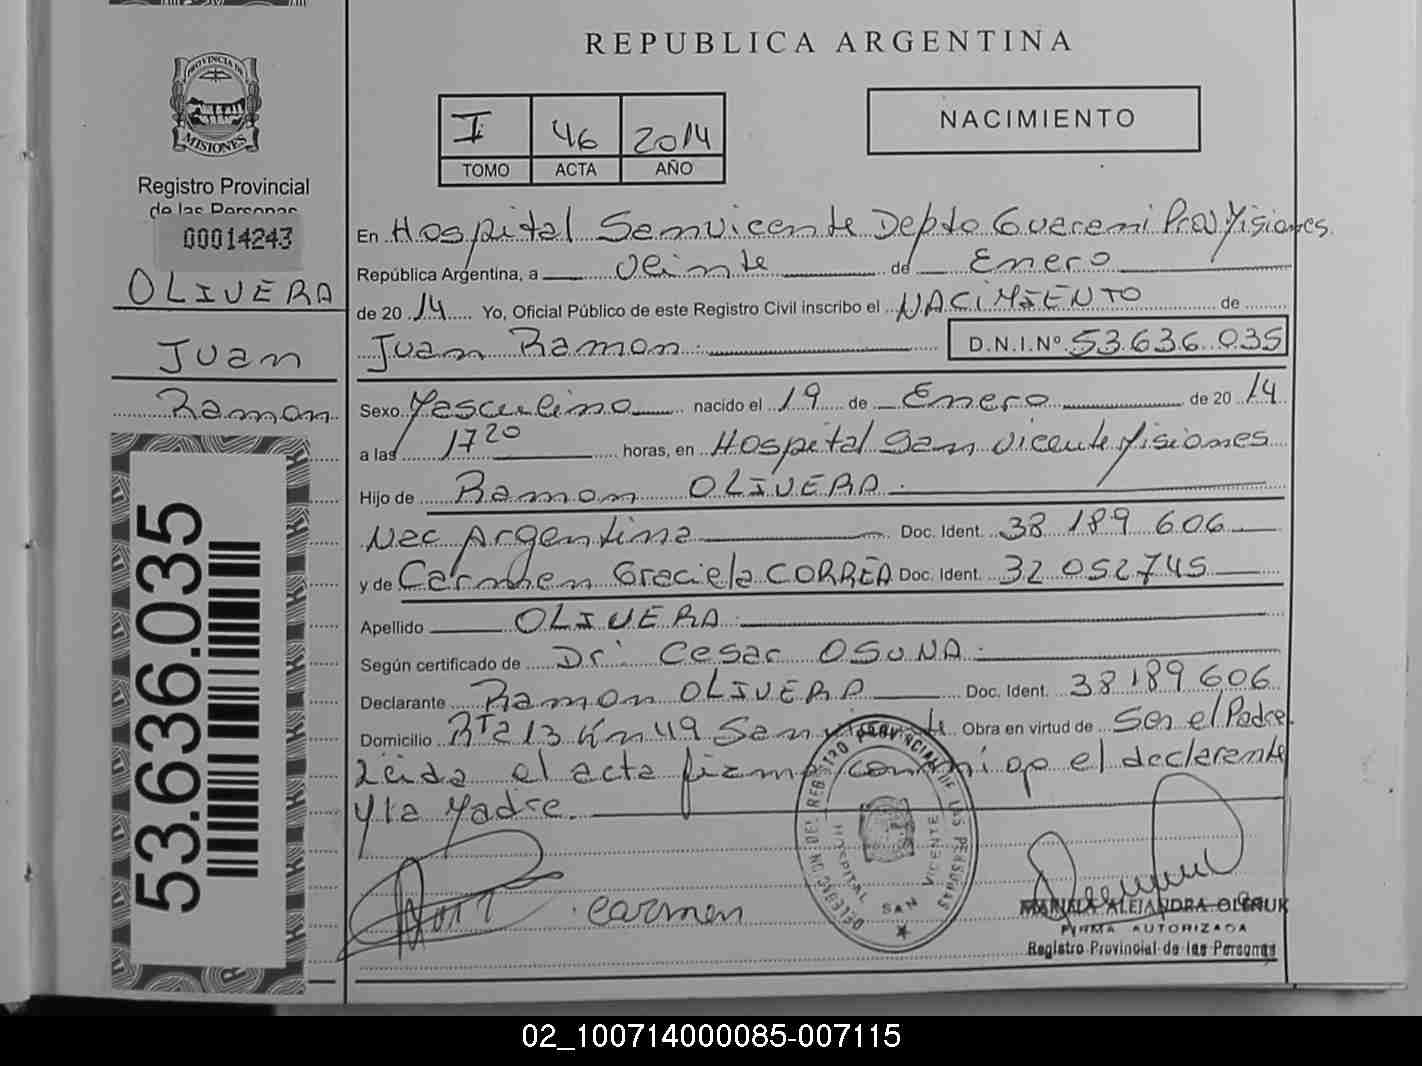 REPUBLICA ARGENTINA
PROVINCIA DE
MISIONES
Registro Provincial
de las Personas
00014243
OLIVERA
Juan
Ramon
53.636.035
I 46 2014
TOMO ACTA AÑO
NACIMIENTO
En Hospital San Vicente Depto Guarani Prov Misiones
República Argentina, a veinte de Enero
de 20 14 Yo, Oficial Público de este Registro Civil inscribo el NACIMIENTO de
Juan Ramon D.N.I.Nº 53.636.035
Sexo Masculino nacido el 19 de Enero de 20 14
a las 17 20 horas, en Hospital San Vicente Misiones
Hijo de Ramon OLIVERA
Nac Argentina Doc. Ident. 38 189 606
y de Carmen Graciela CORREA Doc. Ident. 32 052745
Apellido OLIVERA
Según certificado de Dr. Cesar OSUNA
Declarante Ramon OLIVERA Doc. Ident. 38189606
Domicilio Rta 13 Km 49 San Vicente Obra en virtud de Ser el Padre
Leida el acta firma conmigo el declarante
y la Madre.
DELEGACION DEL REGISTRO PROVINCIAL DE LAS PERSONAS
HOSPITAL SAN VICENTE
carmen
ALEJANDRA
FIRMA AUTORIZADA
Registro Provincial de las Personas
02_100714000085-007115